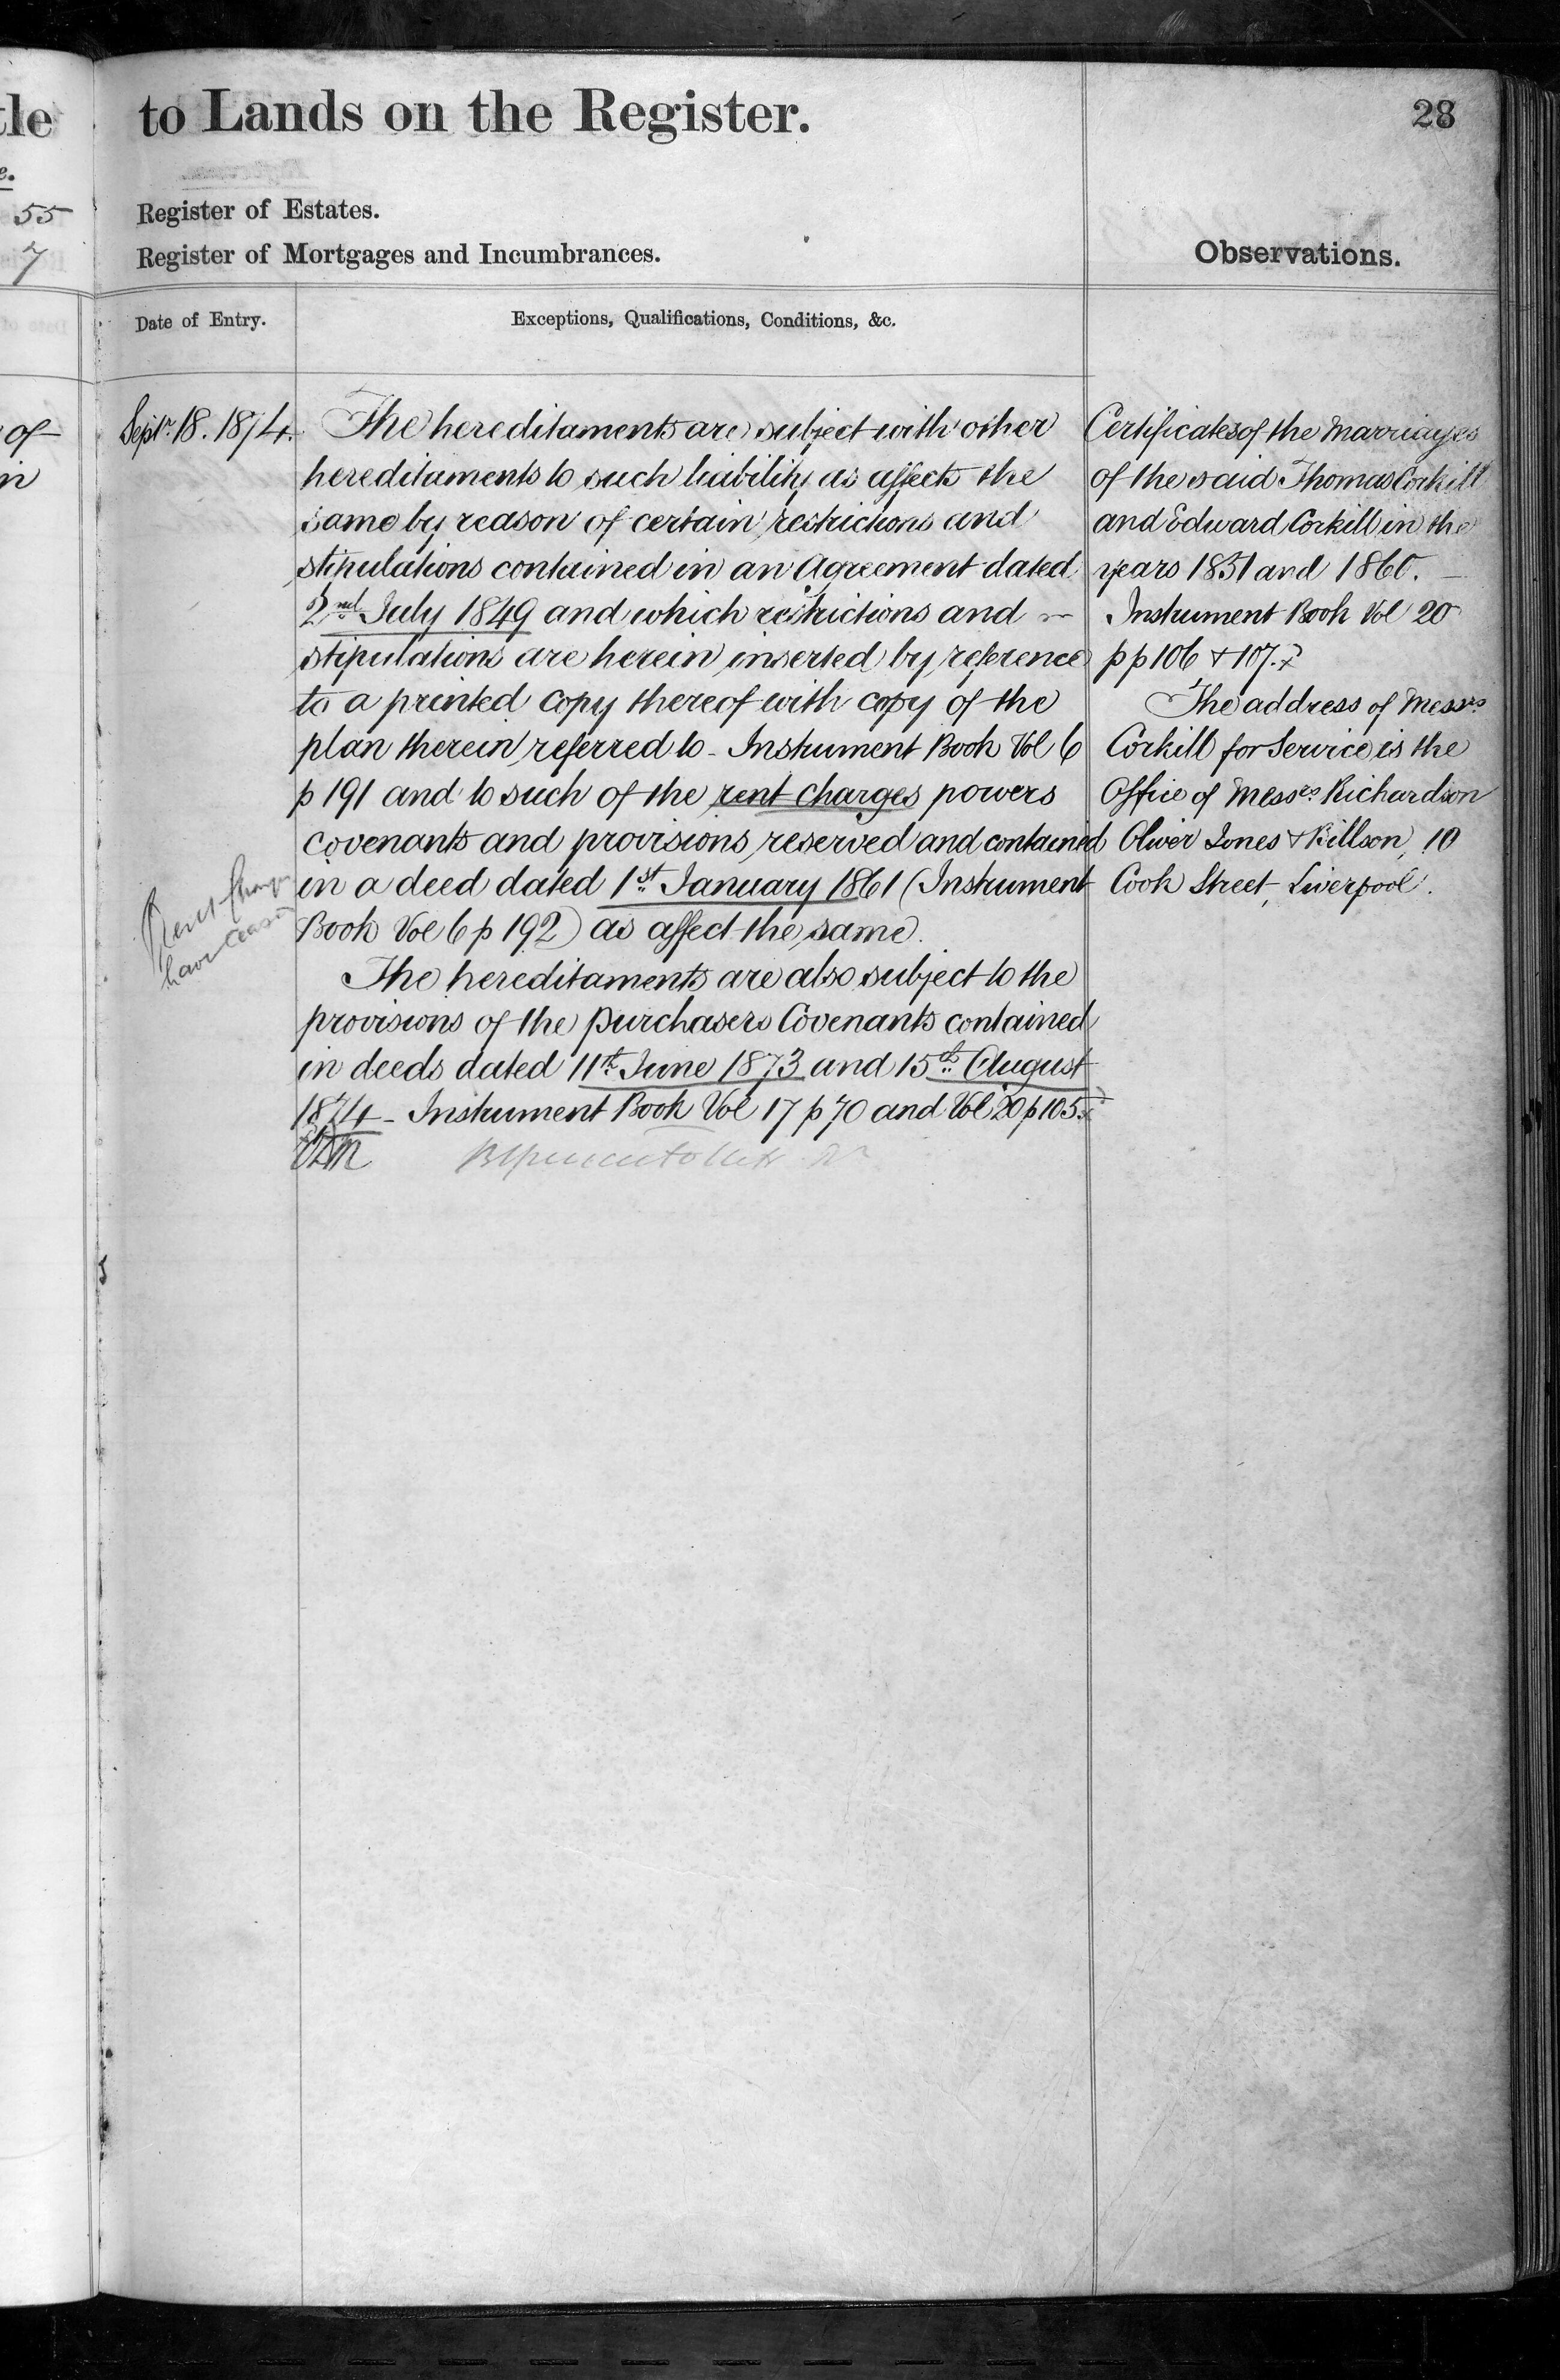 tle
e.
55
7
of
in
to Lands on the Register.
28
Register of Estates.
Register of Mortgages and Incumbrances.
Observations.
Date of Entry.
Exceptions, Qualifications, Conditions, &c.
Septr. 18. 1874.
The hereditaments are subject with other
hereditaments to such liability as affects the
same by reason of certain restrictions and
stipulations contained in an Agreement dated
2nd July 1849 and which restrictions and
stipulations are herein inserted by reference
to a printed copy thereof with copy of the
plan therein referred to - Instrument Book Vol 6
p 191 and to such of the rent charges powers
covenants and provisions reserved and contained
in a deed dated 1st January 1861 (Instrument
Book Vol 6 p 192) as affect the same.
The hereditaments are also subject to the
provisions of the purchasers Covenants contained
in deeds dated 11th June 1873 and 15th August
1874 - Instrument Book Vol 17 p 70 and Vol 20 p 105.
Rent Charges
have ceased
Certificates of the Marriages
of the said Thomas Corkill
and Edward Corkill in the
years 1851 and 1860.
Instrument Book Vol 20
pp 106 & 107.
The address of Messrs
Corkill for Service is the
Office of Messrs. Richardson
Oliver Jones & Billson, 10
Cook Street, Liverpool.